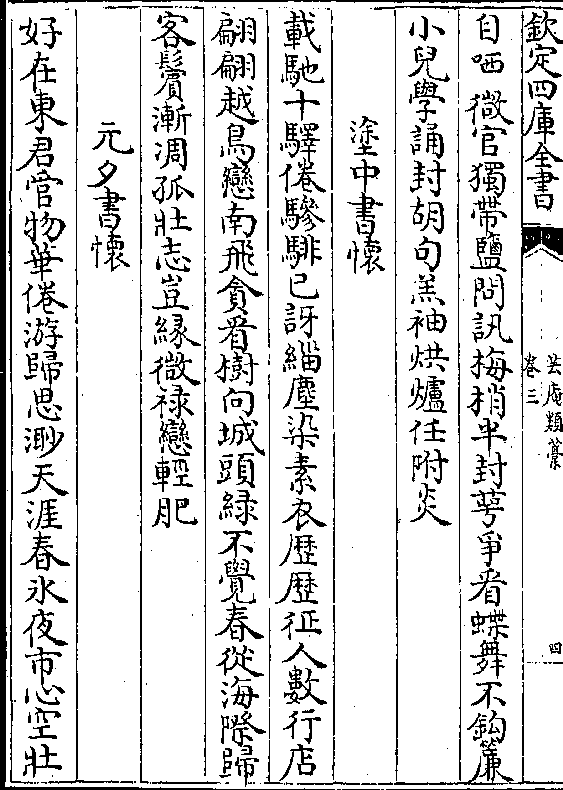 欽定四庫全書
芸庵類藁
卷三
四
自哂微官獨帶鹽問訊梅梢半封萼爭看蝶舞不鈎簾
小兒學誦封胡句羔袖烘爐任附炎
塗中書懷
載馳十驛倦驂騑已訝緇塵染素衣歷歷征人數行店
翩翩越鳥戀南飛貪看樹向城頭緑不覺春從海際歸
客鬢漸凋孤壯志豈縁微禄戀輕肥
元夕書懷
好在東君管物華倦游歸思渺天涯春氷夜市心空壯